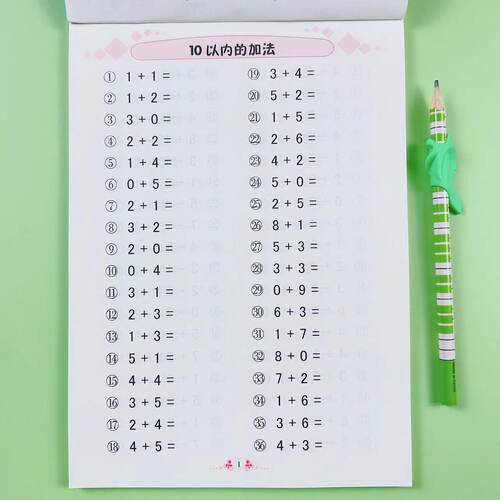 10 以内的加法
① 1 + 1 =
② 1 + 2 =
③ 3 + 0 =
④ 2 + 2 =
⑤ 1 + 4 =
⑥ 0 + 5 =
⑦ 2 + 1 =
⑧ 3 + 2 =
⑨ 2 + 0 =
⑩ 0 + 4 =
⑪ 3 + 1 =
⑫ 2 + 3 =
⑬ 1 + 3 =
⑭ 5 + 1 =
⑮ 4 + 4 =
⑯ 3 + 5 =
⑰ 2 + 4 =
⑱ 4 + 5 =
⑲ 3 + 4 =
⑳ 5 + 2 =
㉑ 1 + 5 =
㉒ 2 + 6 =
㉓ 4 + 2 =
㉔ 5 + 0 =
㉕ 2 + 5 =
㉖ 8 + 1 =
㉗ 5 + 3 =
㉘ 3 + 3 =
㉙ 0 + 9 =
㉚ 6 + 3 =
㉛ 1 + 7 =
㉜ 8 + 0 =
㉝ 7 + 2 =
㉞ 1 + 6 =
㉟ 3 + 6 =
㊱ 4 + 3 =
1